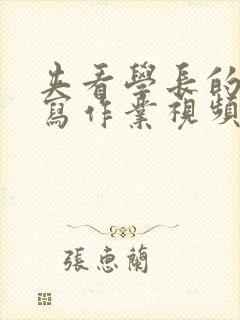 夫看學長的
寫作業視頻
張惠蘭